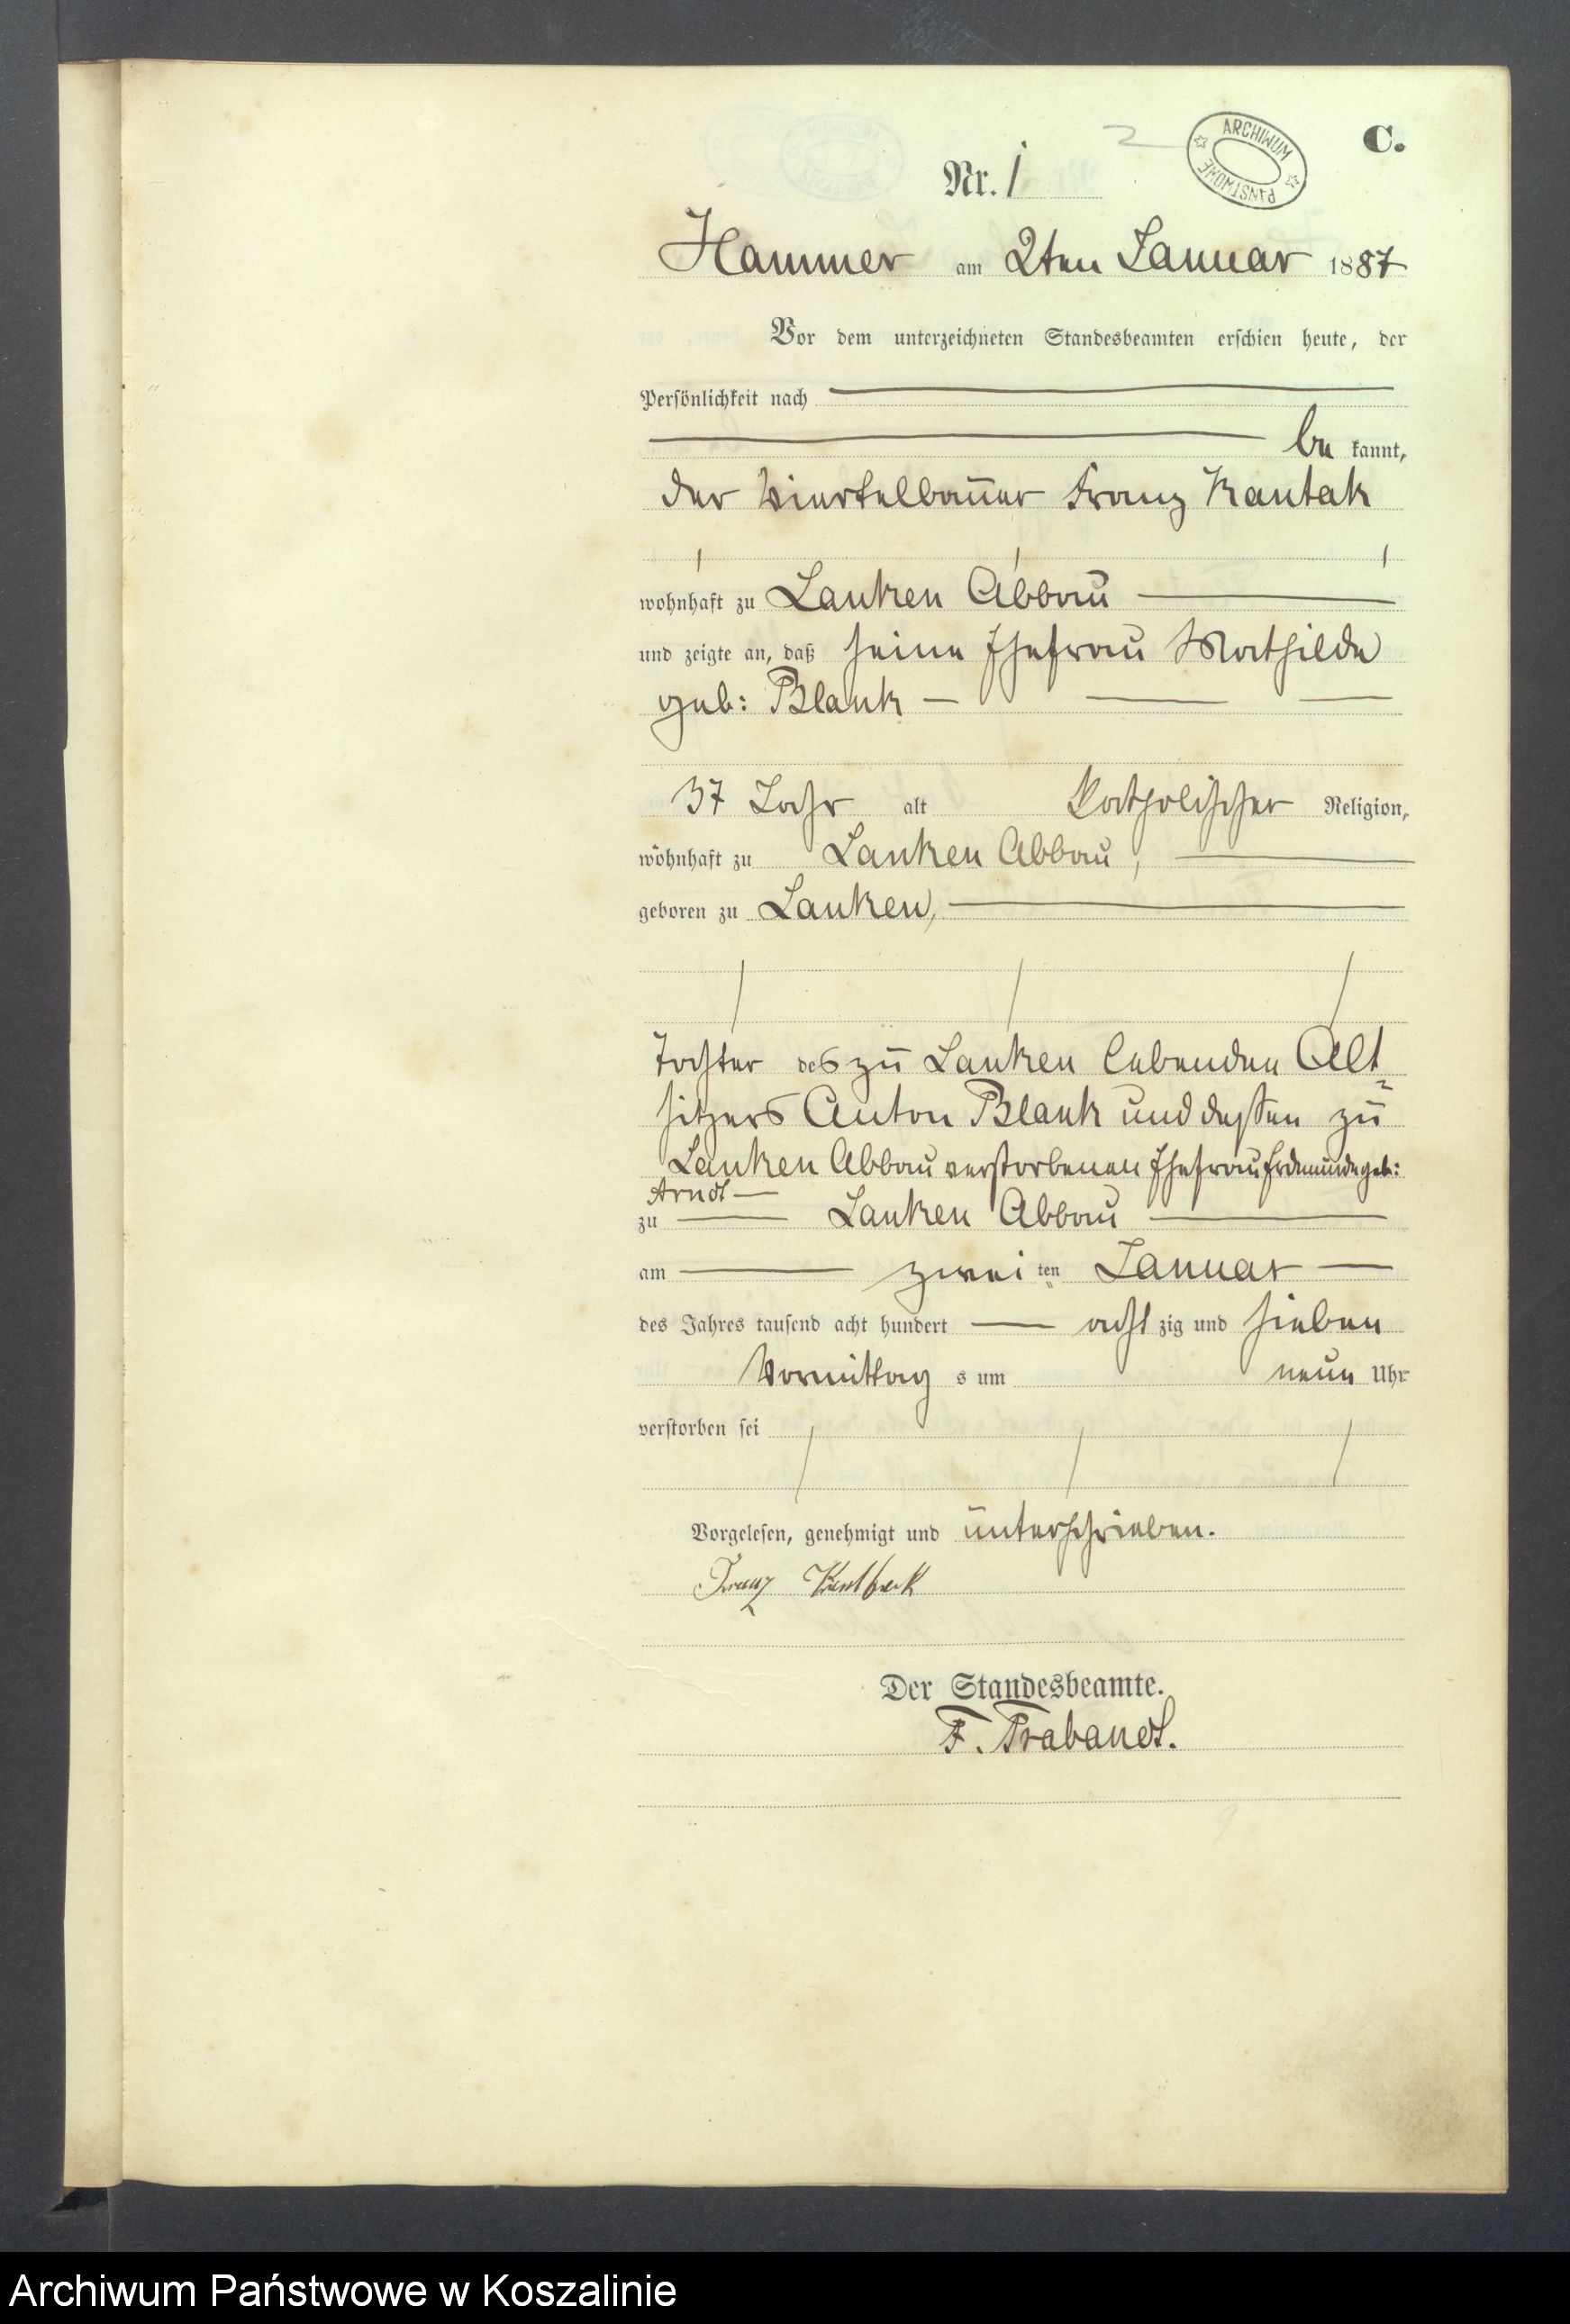 C.
ARCHIWUM PAŃSTWOWE
Nr. 1
Hammer am 2ten Januar 1887
Vor dem unterzeichneten Standesbeamten erschien heute, der
Persönlichkeit nach
be kannt,
der Viertelbauer Franz Kantak
wohnhaft zu Lanken Abbau
und zeigte an, daß seine Ehefrau Mathilde
geb: Blank
37 Jahr alt katholischer Religion,
wohnhaft zu Lanken Abbau,
geboren zu Lanken,
Tochter des zu Lanken lebenden Alt
sitzers Anton Blank und dessen zu
Lanken Abbau verstorbenen Ehefrau Erdmunde geb:
Arndt
zu Lanken Abbau
am zwei ten Januar
des Jahres tausend acht hundert acht zig und sieben
Vormittag s um neun Uhr
verstorben sei
Vorgelesen, genehmigt und unterschrieben.
Franz
Der Standesbeamte.
F. Brabandt.
Archiwum Państwowe w Koszalinie